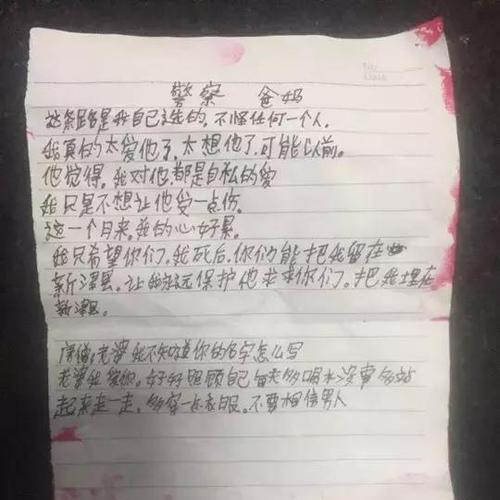 警察 爸妈
这条路是我自己选的，不怪任何一个人。
我真的太爱他了，太想他了，可能以前。
他觉得。我对他都是自私的爱
我只是不想让他受一点伤。
这一个月来。我的心好累。
我只希望你们。我死后。你们能把我留在
新津县。让我永远保护他求求你们。把我埋在
新津。
老婆我不知道你的名字怎么写
老婆我爱你。好好照顾自己每天多喝水没事多站
起来走一走，多穿一点衣服。不要相信男人